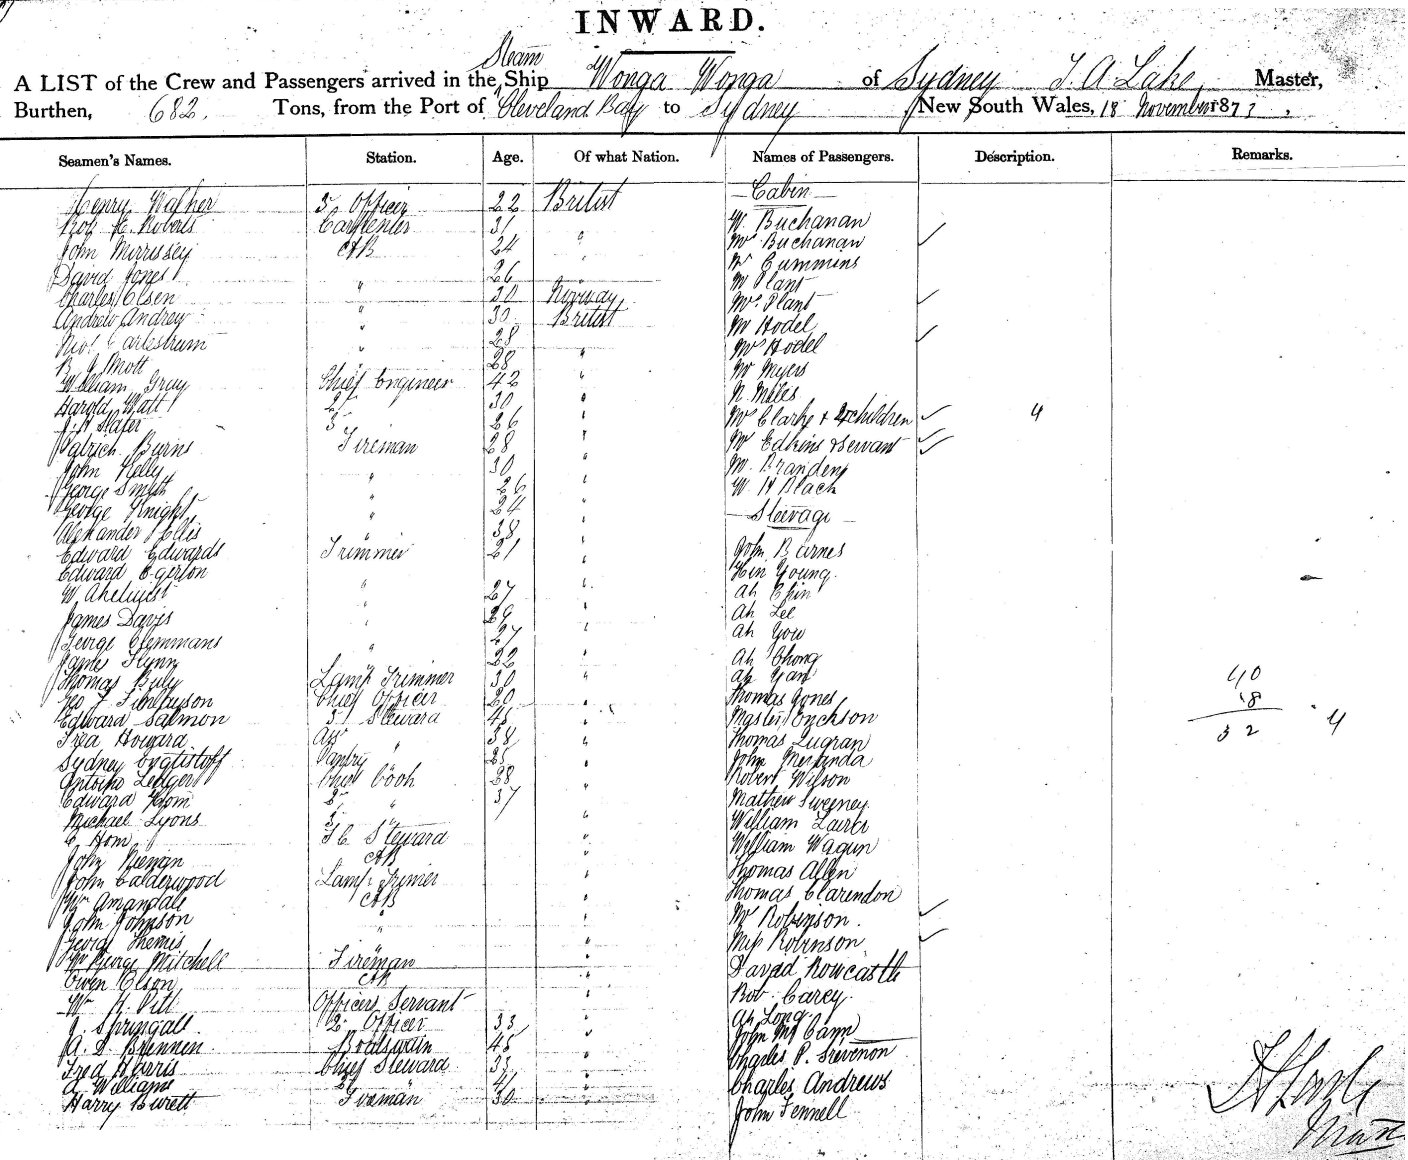 INWARD.
Steam
A LIST of the Crew and Passengers arrived in the Ship Wonga Wonga of Sydney T. A Lake, Master,
Burthen, 682. Tons, from the Port of Cleveland Bay to Sydney New South Wales, 18 November 1873.
Seamen's Names. Station. Age. Of what Nation. Names of Passengers. Description. Remarks.
Cabin
Henry Walker 3 Officer 22 British
Robt E. Roberts Carpenter 31 " W. Buchanan
John Morrissey AB 24 " Mrs Buchanan
Mr Cummins
David Jones " 26 " Mr Plant
Charles Olsen " 30 Norway Mrs Plant
Andrew Andrey " 30 British Mr Hodel
" 28 " Mrs Hodel
Mott 28 " Mr Myers
William Gray Chief Engineer 42 " N. Miles
Harold Watt 2 " 30 " Mrs Clarke + 4 children 4
J. Slater 3 " 26 " Mrs Edkins & Servant
Patrick Burns Fireman 28 "
John Kelly " 30 " Mr Branden
George Smith " 26 " W. H Black
George Knight " 24 " Steerage
Alexander Ellis " 38 "
Edward Edwards Trimmer 21 " John Barnes
Edward Egerton " Hin Young
W. " 27 " Ah Chin
James Davis " 29 " Ah Lee
George Clemmans " 27 " Ah You
James Flynn " 22 " Ah Chong
Thomas Lamp Trimmer 30 " Ah Yan 40
Geo F Finlayson Chief Officer 20 " Thomas Jones 18
Edward Salmon 3 Steward 45 " Master 32 4
Fred Howard " 38 " Thomas
Sydney Pantry " 25 " John
Antoine Ledger Chief Cook 28 " Robert Wilson
Edward Hom 2 " 37 " Mathew Sweeney
Michael Lyons 3 " William
C Hom Steward " William
John AB " Thomas Allen
John Calderwood Lamp Trimer " Thomas Clarendon
Wm Amandale AB " Mr Robinson.
John Johnson " Miss Robinson
George "
Wm George Mitchell Fireman " David Rowcastle
Owen Olson AB " Bob. Carey.
Wm H. Officers Servant " Ah Long
J. Springall. 2 Officer 33 " John
A. D. Brennen Boatswain 45 " Charles P. Trevenon
Fred Harris Chief Steward 33 "
A. Williams 2 " 41 " Charles Andrews
Harry Burett Fireman 30 " John Fennell